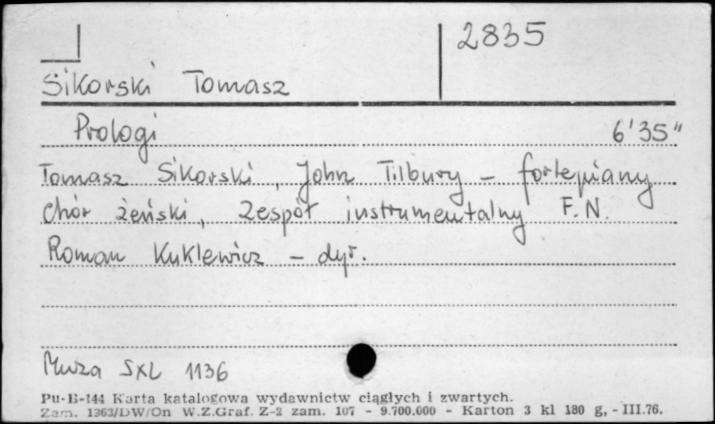 2835
Sikorski Tomasz
Prologi 6'35"
Tomasz Sikorski, John Tilbury – fortepiany
Chór żeński, Zespół instrumentalny F.N.
Roman Kuklewicz – dyr.
Muza SXL 1136
Pu-B-144 Karta katalogowa wydawnictw ciągłych i zwartych.
Zam. 1363/DW/On W.Z.Graf. Z-2 zam. 107 - 9.700.000 - Karton 3 kl 180 g, - III.76.